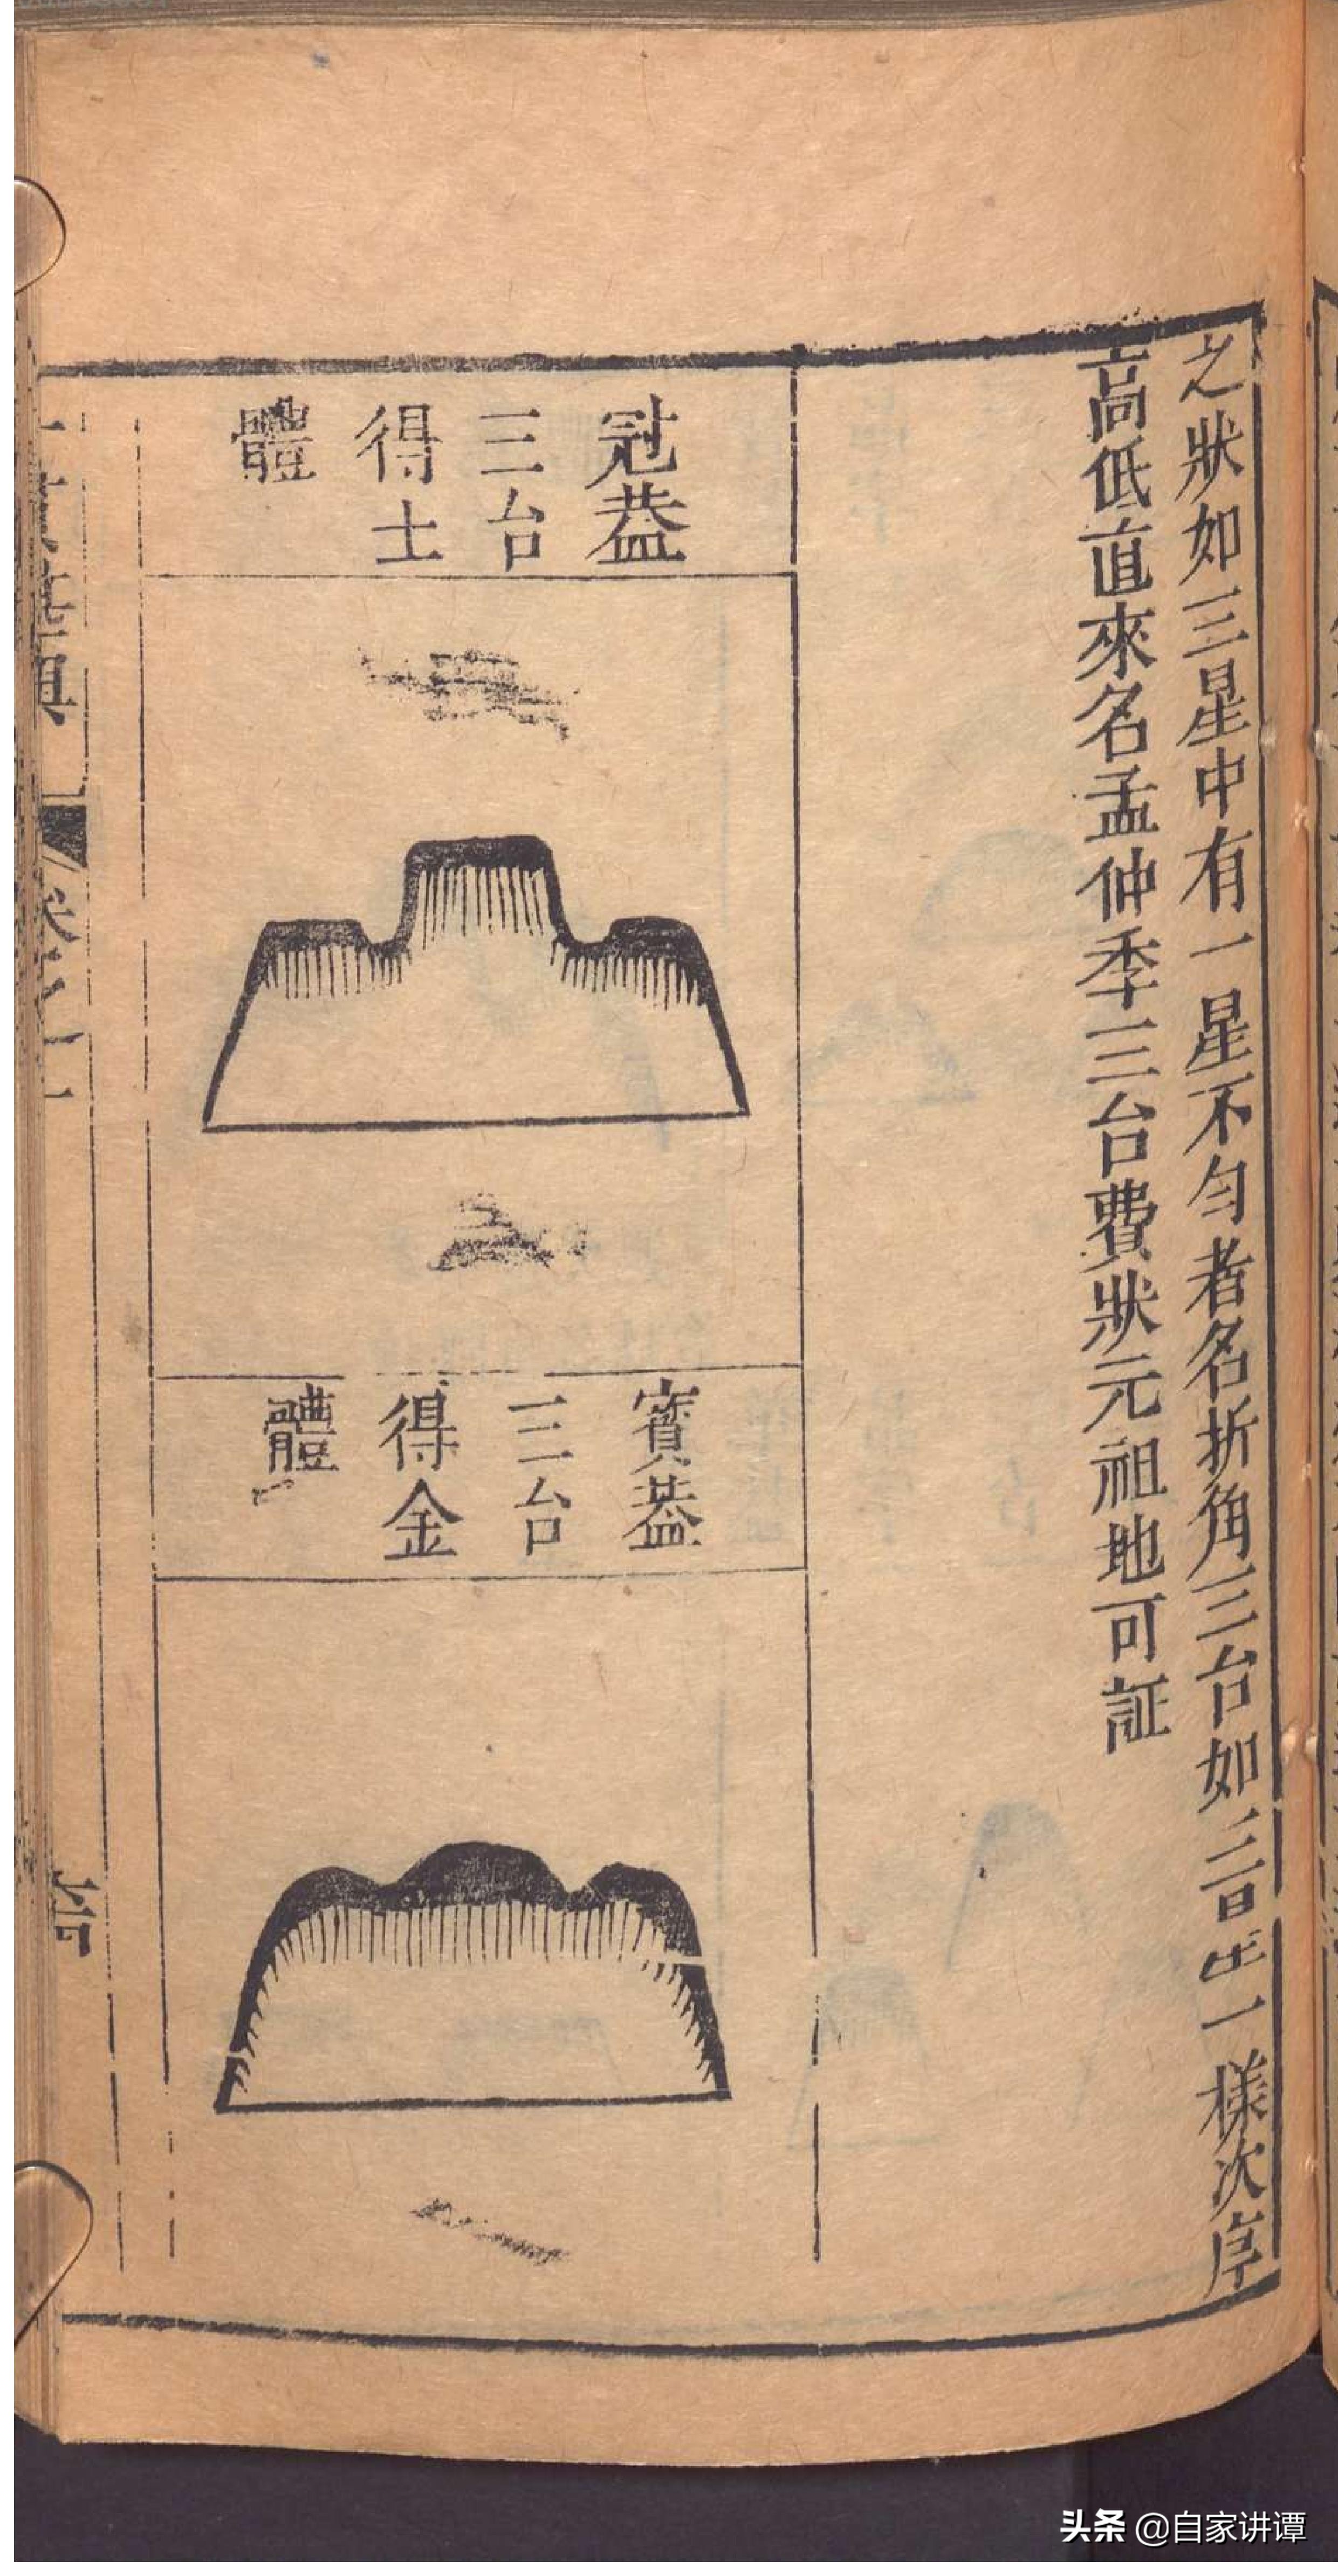 之狀如三星中有一星不匀者名折角三台如三台出一樣次序
高低直來名孟仲季三台費狀元祖地可証
冠葢
三台
得土
體
寳葢
三台
得金
體
头条 @自家讲谭